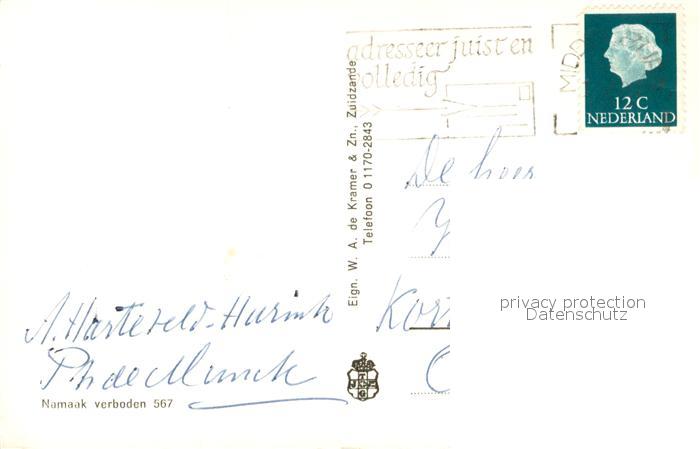 adresseer juist en
volledig
MIDD
12 C
NEDERLAND
Eign. W. A. de Kramer & Zn., Zuidzande
Telefoon 0 1170-2843
De heer
Kor
privacy protection
Datenschutz
A. Harteveld-Hurink
Ph de Munck
Namaak verboden 567